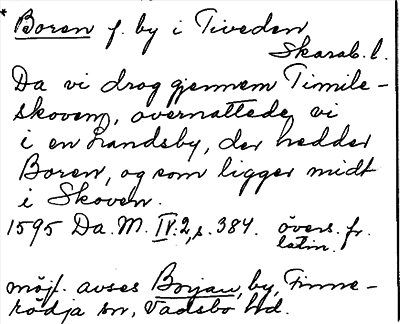 * Boren f. by i Tiveden
Skarab. l.
Da vi drog gjennem Timile-
skoven, overnattede vi
i en Landsby, der hedder
Boren, og som ligger midt
i Skoven.
1595 Da. M. IV. 2, s. 384. övers. fr.
latin.
möjl. avses Borjan, by, Finne-
rödja sn, Vadsbo hd.